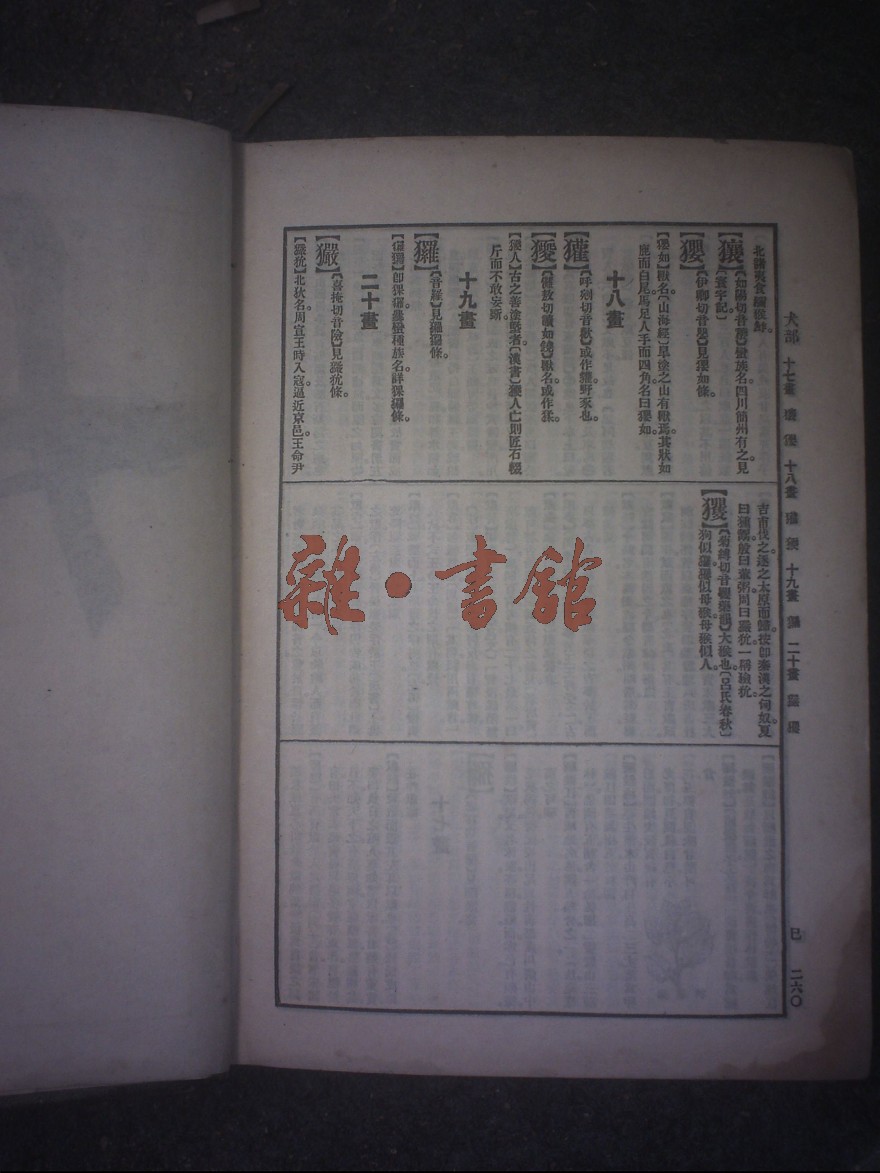 犬部 十七畫 獽 玃 十八畫 獾 獿 十九畫 玀 二十畫 玁 玃
北諸夷食
【獽】
【如陽切音穰】蠻族名。四川簡州有之。見
【寰宇記】
【玃】
【伊卿切音嬰】見玃如條。
【玃如】獸名。【山海經】皐塗之山有獸焉。其狀如
鹿而白尾。馬足人手而四角。名曰玃如。
十八畫
【獾】
【呼剜切音歡】或作貛。野豕也。
【獿】
獸名。或作猱。
【獿人】古之善塗墍者。【漢書】獿人亡則匠石輟
斤而不敢妄斲。
十九畫
【玀】
【音羅】見玀條。
即猓玀。蠻種族名。詳猓玀條。
二十畫
【玁】
【喜掩切音險】見玁狁條。
【玁狁】北狄名。周宣王時入寇。逼近京邑。王命尹
吉甫伐之。逐之太原而歸。按卽秦漢之匈奴。夏
曰獯鬻。周曰玁狁。一稱獫狁。
【玃】
大猴也。【呂氏春秋】
狗似玃。玃似母猴。母猴似人。
巳 二六〇
雜·書館